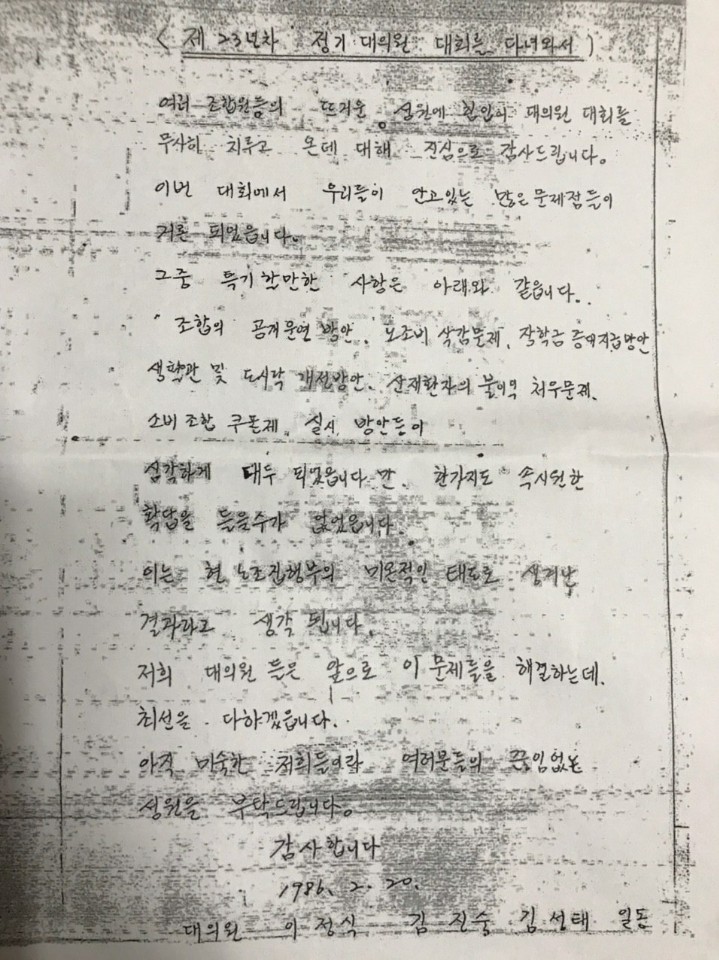 < 제 23년차 정기 대의원 대회를 다녀와서 )
여러 조합원들의 뜨거운 성원에 힘입어 대의원 대회를
무사히 치루고 온데 대해 진심으로 감사드립니다.
이번 대회에서 우리들이 안고있는 많은 문제점들이
거론 되었읍니다.
그중 특기할만한 사항은 아래와 같읍니다.
조합의 공개운영 방안, 노조비 삭감문제, 장학금 증액지급방안
생활관 및 도시락 개선방안, 산재환자의 불이익 처우문제,
소비 조합 쿠폰제, 실시, 방안등이
심각하게 대두 되었읍니다만 한가지도 속시원한
확답을 들을수가 없었읍니다.
이는 현 노조집행부의 미온적인 태도로 생겨난
결과라고 생각 됩니다.
저희 대의원 들은 앞으로 이 문제들을 해결하는데.
최선을 다하겠읍니다.
아직 미숙한 저희들이라 여러분들의 끊임없는
성원을 부탁드립니다.
감사합니다
1986. 2. 20.
대의원 이정식 김진숙 김성태 일동